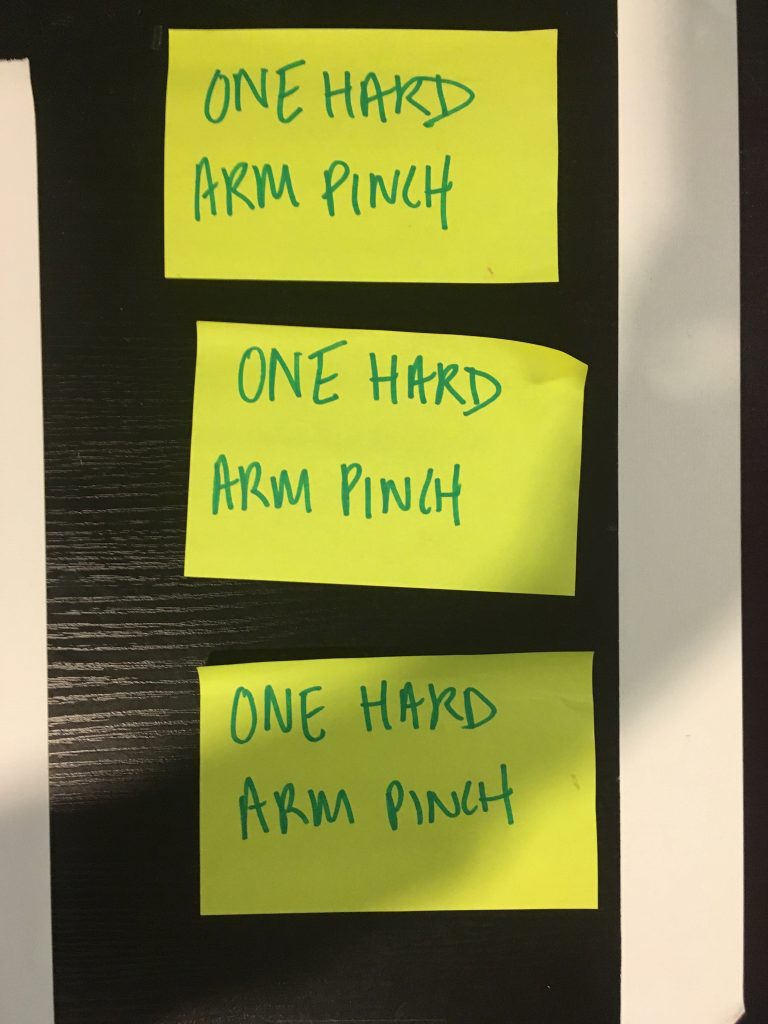 ONE HARD
ARM PINCH
ONE HARD
ARM PINCH
ONE HARD
ARM PINCH